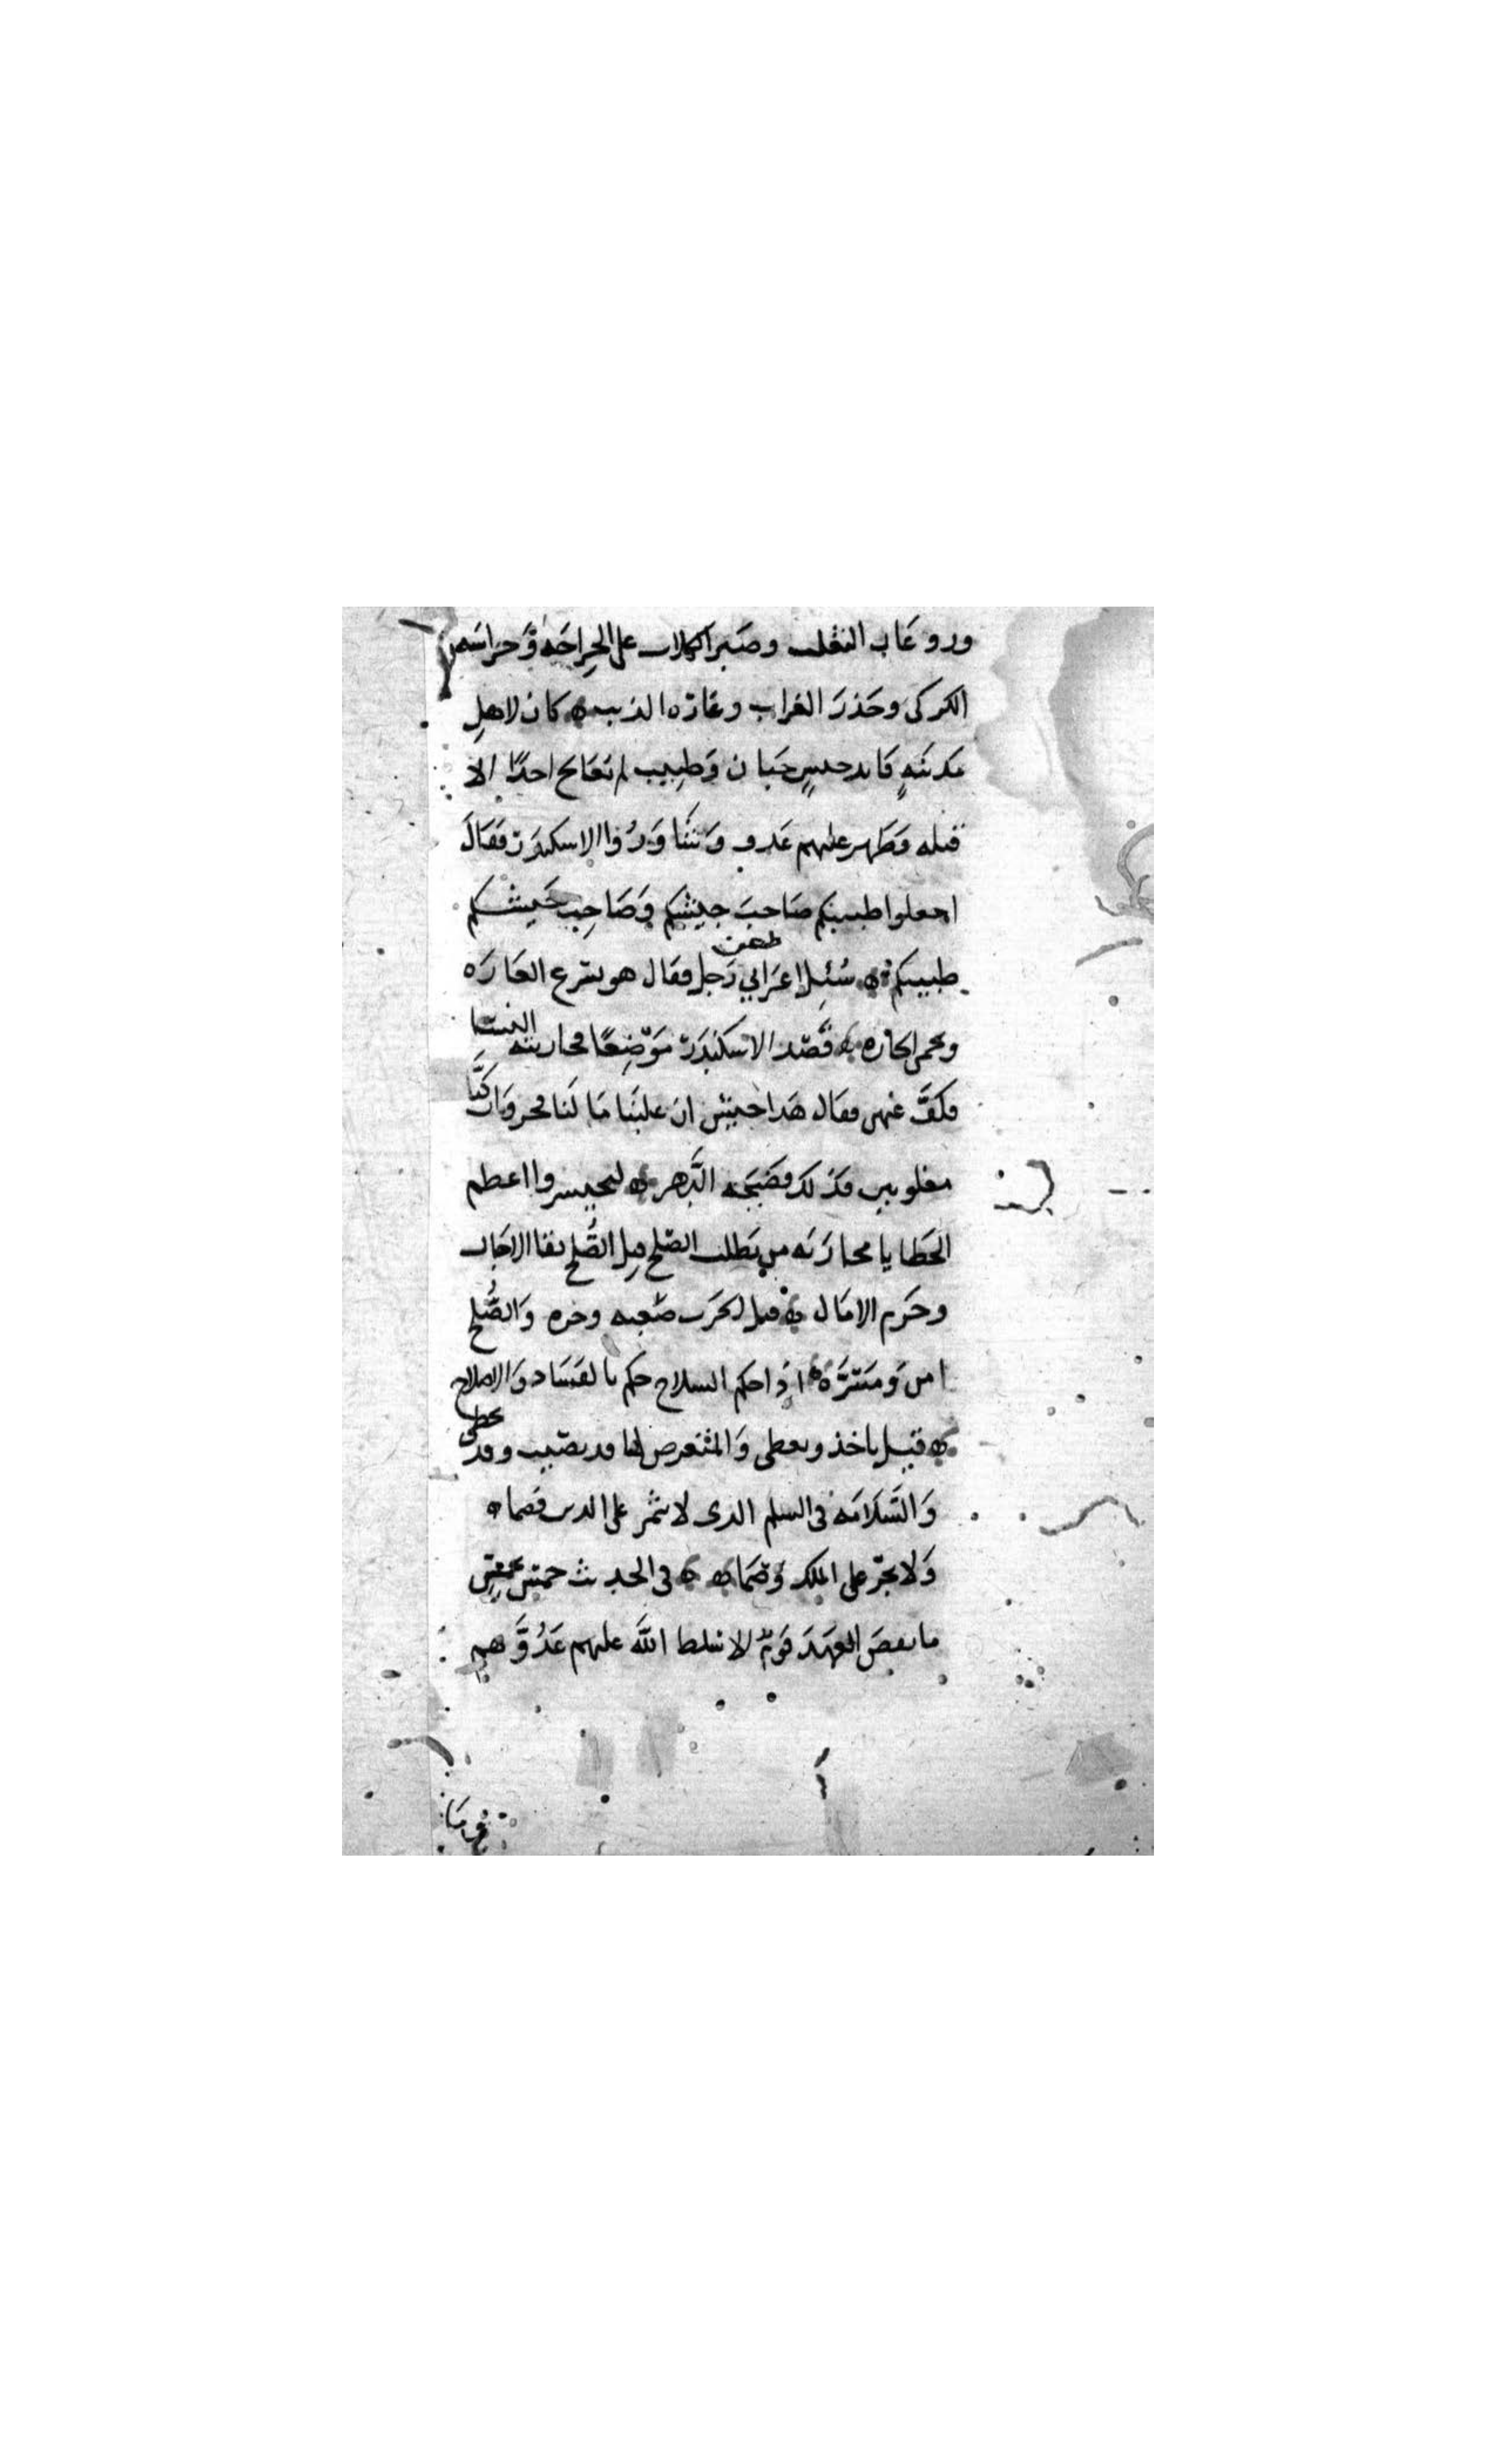 وروغان الثعلب وصبر الكلاب على الجراحة وحراسه
الكركى وحذر الغراب وغارة الذيب ه كان لاهل
مدينة قايد جيش جبان وطبيب لم يعالج احدًا الا
قتله وظهر عليهم عدو وشاوروا الاسكندر فقال
اجعلوا طبيبكم صاحب جيشكم وصاحب جيشكم
طبيبكم ه سُئل اعرابي عن رجل فقال هو يسرع الغاره
ويحمى الجاره ه قصد الاسكندر موضعًا فحاربته النسا
فكفَّ عنهن فقال هذا جيش ان غلبنا ما لنا فخر وان كنَّا
مغلوبين فذلك فضيحة الدهر ه
الخطايا محاربة من يطلب الصلح قيل الصلح بقا الاجال
وحرم الاموال ه قيل الحرب صعبه ومره والصُّلح
امن ومسرَّة ه اذا حكم السلاح حكم بالفساد والاصلاح
ه قيل ياخذ ويعطى والمتعرض لها قد يصيب وقد يخطى
والسَّلامه فى السلم الذى لا يثمر على الدين
ولا يجرّ على الملك ه فى الحديث خمس بخمس
ما نقض العهد قوم الا سلط الله عليهم عدُوَّهم